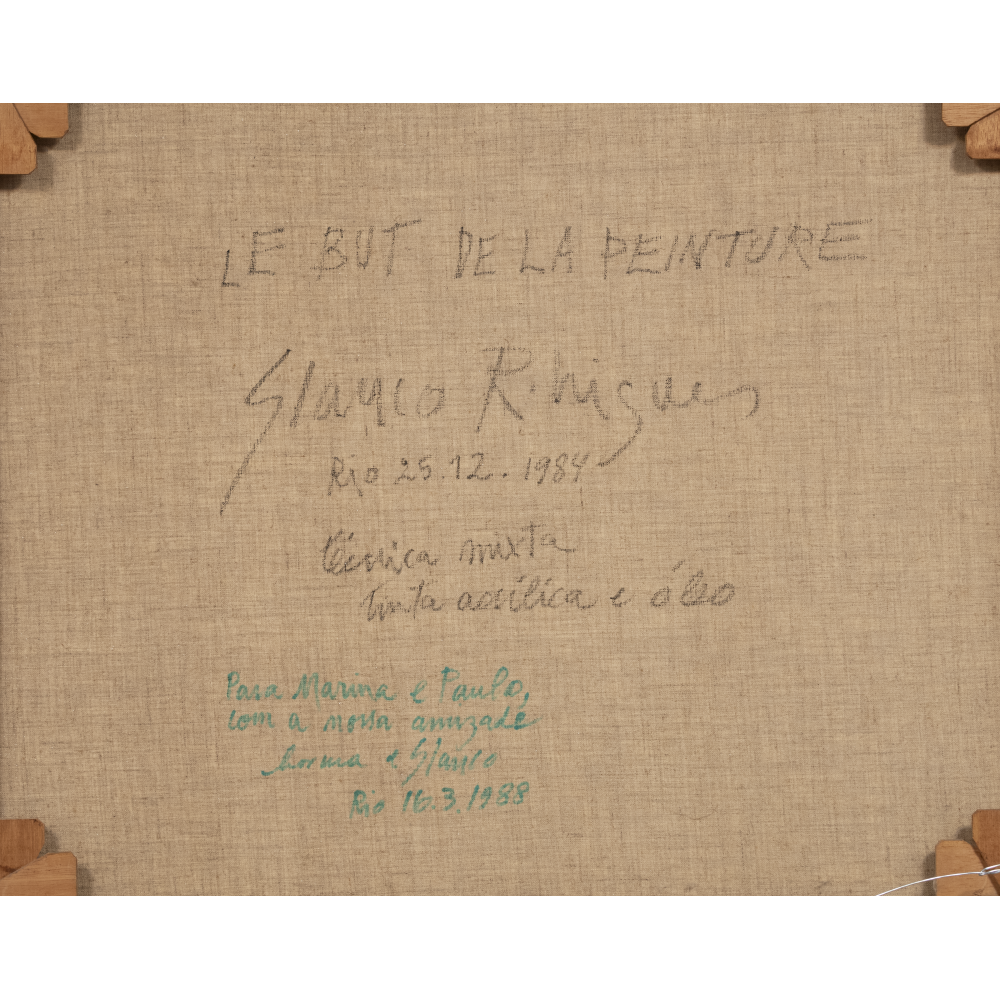 LE BUT DE LA PEINTURE
Glauco Rodrigues
Rio 25.12.1984
técnica mixta
tinta acrílica e óleo
Para Marina e Paulo,
com a nossa amizade
Norma e Glauco
Rio 16.3.1988